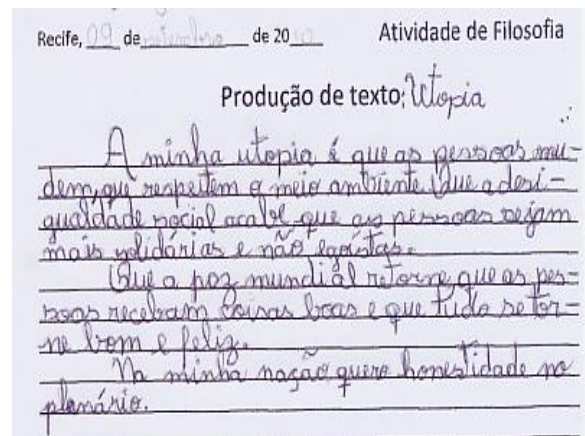 Recife, 09 de setembro de 2010 Atividade de Filosofia
Produção de texto: Utopia
A minha utopia é que as pessoas mu-
dem, que respeitem o meio ambiente. Que a desi-
gualdade social acabe que as pessoas sejam
mais solidárias e não egoístas.
Que a paz mundial retorne, que as pes-
soas recebam coisas boas e que tudo se tor-
ne bom e feliz.
Na minha nação quero honestidade no
plenário.